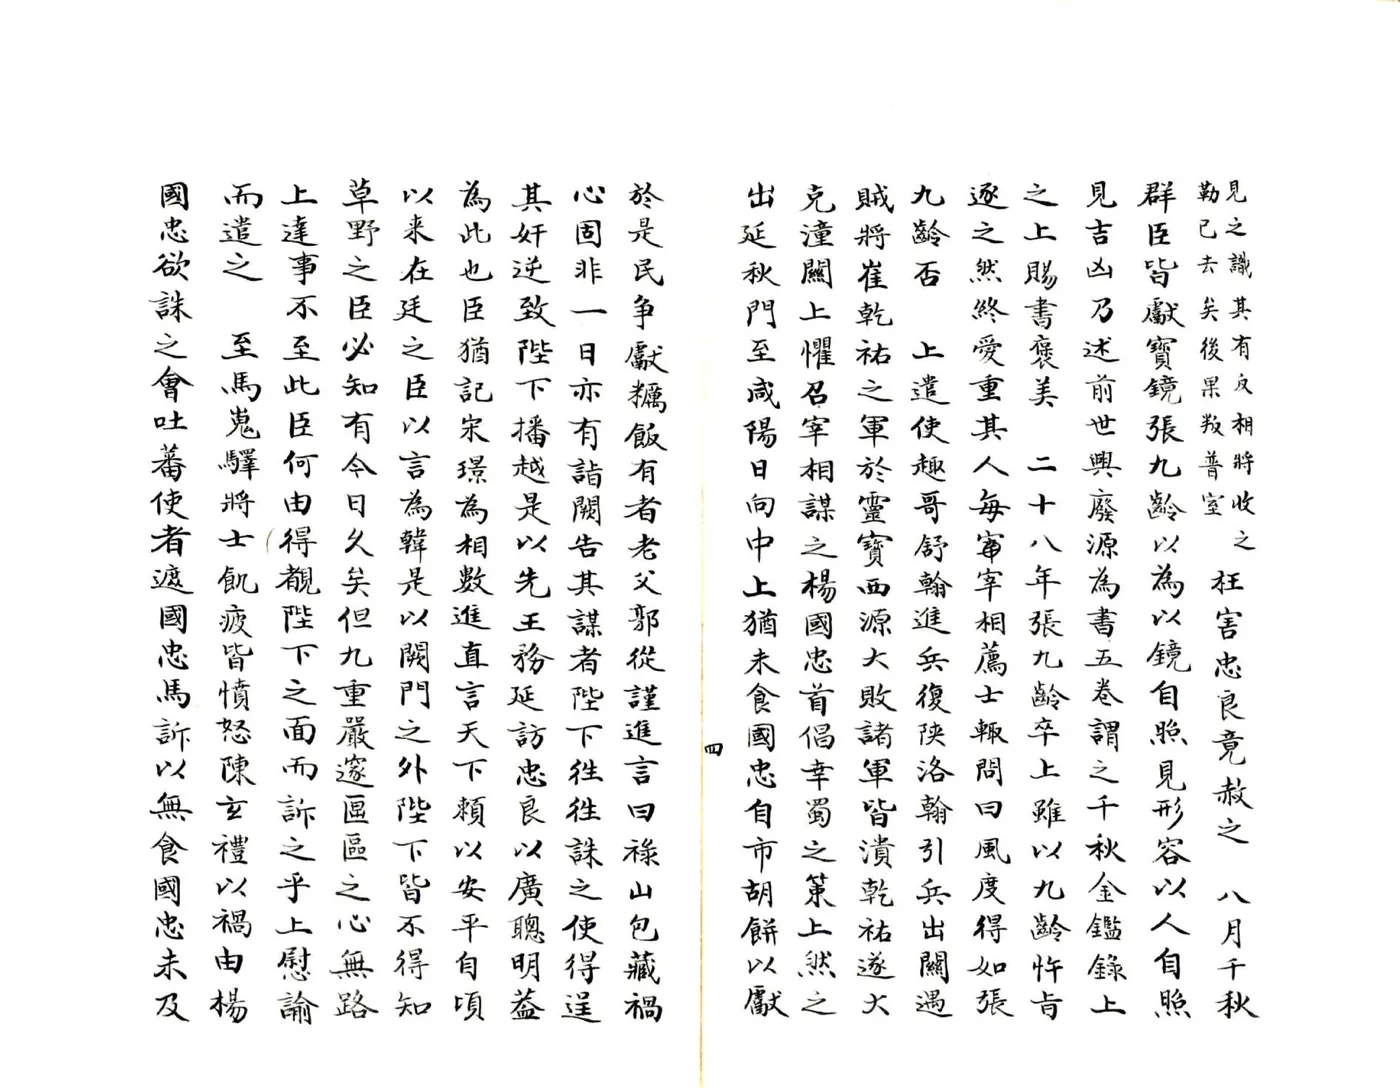 見之識其有反相將收之
勒已去矣後果叛普室
枉害忠良竟赦之　八月千秋
群臣皆獻寶鏡張九齡以為以鏡自照見形容以人自照
見吉凶乃述前世興廢源為書五卷謂之千秋金鑑錄上
之上賜書褒美　二十八年張九齡卒上雖以九齡忤旨
逐之然終愛重其人每宰相薦士輙問曰風度得如張
九齡否　上遣使趣哥舒翰進兵復陝洛翰引兵出關遇
賊將崔乾祐之軍於靈寶西源大敗諸軍皆潰乾祐遂大
克潼關上懼召宰相謀之楊國忠首倡幸蜀之策上然之
出延秋門至咸陽日向中上猶未食國忠自市胡餅以獻
四
於是民争獻糲飯有者老父郭從謹進言曰祿山包藏禍
心固非一日亦有詣闕告其謀者陛下徃徃誅之使得逞
其奸逆致陛下播越是以先王務延訪忠良以廣聰明葢
為此也臣猶記宋璟為相數進直言天下頼以安平自頃
以来在廷之臣以言為韓是以闕門之外陛下皆不得知
草野之臣必知有今日久矣但九重嚴邃區區之心無路
上達事不至此臣何由得覩陛下之面而訴之乎上慰諭
而遣之　至馬嵬驛將士飢疲皆憤怒陳玄禮以禍由楊
國忠欲誅之會吐蕃使者遮國忠馬訴以無食國忠未及